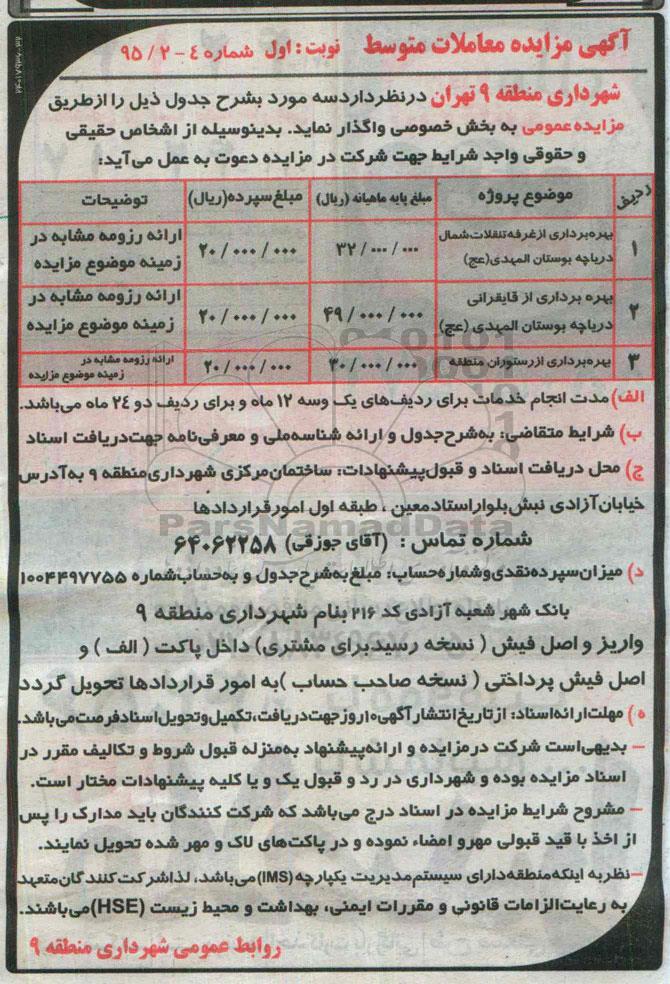 آگهی مزایده معاملات متوسط نوبت: اول شماره ٤-٢ / ٩٥
شهرداری منطقه ۹ تهران درنظر دارد سه مورد بشرح جدول ذیل را از طریق
مزایده عمومی به بخش خصوصی واگذار نماید. بدینوسیله از اشخاص حقیقی
و حقوقی واجد شرایط جهت شرکت در مزایده دعوت به عمل می‌آید:
ردیف موضوع پروژه مبلغ پایه ماهیانه (ریال) مبلغ سپرده (ریال) توضیحات
۱ بهره‌برداری از غرفه تنقلات شمال دریاچه بوستان المهدی (عج) ۳۲/۰۰۰/۰۰۰ ۲۰/۰۰۰/۰۰۰ ارائه رزومه مشابه در زمینه موضوع مزایده
۲ بهره برداری از قایقرانی دریاچه بوستان المهدی (عج) ۴۹/۰۰۰/۰۰۰ ۲۰/۰۰۰/۰۰۰ ارائه رزومه مشابه در زمینه موضوع مزایده
۳ بهره‌برداری از رستوران منطقه ۳۰/۰۰۰/۰۰۰ ۲۰/۰۰۰/۰۰۰ ارائه رزومه مشابه در زمینه موضوع مزایده
الف) مدت انجام خدمات برای ردیف‌های یک وسه ۱۲ ماه و برای ردیف دو ۲٤ ماه می‌باشد.
ب) شرایط متقاضی: به‌شرح جدول و ارائه شناسه‌ملی و معرفی‌نامه جهت دریافت اسناد
ج) محل دریافت اسناد و قبول پیشنهادات: ساختمان مرکزی شهرداری منطقه ۹ به آدرس
خیابان آزادی نبش بلوار استاد معین ، طبقه اول امور قراردادها
ParsNamadData
شماره تماس : (آقای جوزقی) ۶۴۰۶۲۲۵۸
د) میزان سپرده نقدی و شماره حساب: مبلغ به شرح جدول و به حساب شماره ۱۰۰۴۴۹۷۷۵۵
بانک شهر شعبه آزادی کد ۲۱۶ بنام شهرداری منطقه ۹
واریز و اصل فیش ( نسخه رسید برای مشتری) داخل پاکت ( الف ) و
اصل فیش پرداختی ( نسخه صاحب حساب )به امور قراردادها تحویل گردد
ه) مهلت ارائه اسناد: از تاریخ انتشار آگهی ۱۰ روز جهت دریافت، تکمیل و تحویل اسناد فرصت می‌باشد.
– بدیهی است شرکت در مزایده و ارائه پیشنهاد به‌منزله قبول شروط و تکالیف مقرر در
اسناد مزایده بوده و شهرداری در رد و قبول یک و یا کلیه پیشنهادات مختار است.
– مشروح شرایط مزایده در اسناد درج می‌باشد که شرکت کنندگان باید مدارک را پس
از اخذ با قید قبولی مهر و امضاء نموده و در پاکت‌های لاک و مهر شده تحویل نمایند.
– نظر به اینکه منطقه دارای سیستم مدیریت یکپارچه (IMS) می‌باشد، لذا شرکت کنندگان متعهد
به رعایت الزامات قانونی و مقررات ایمنی، بهداشت و محیط زیست (HSE) می‌باشند.
روابط عمومی شهرداری منطقه ۹